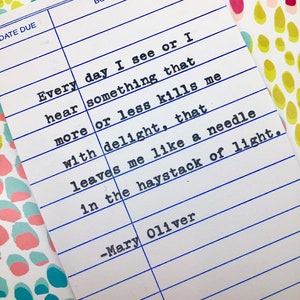 DATE DUE
Every day I see or I
hear something that
more or less kills me
with delight, that
leaves me like a needle
in the haystack of light.
-Mary Oliver